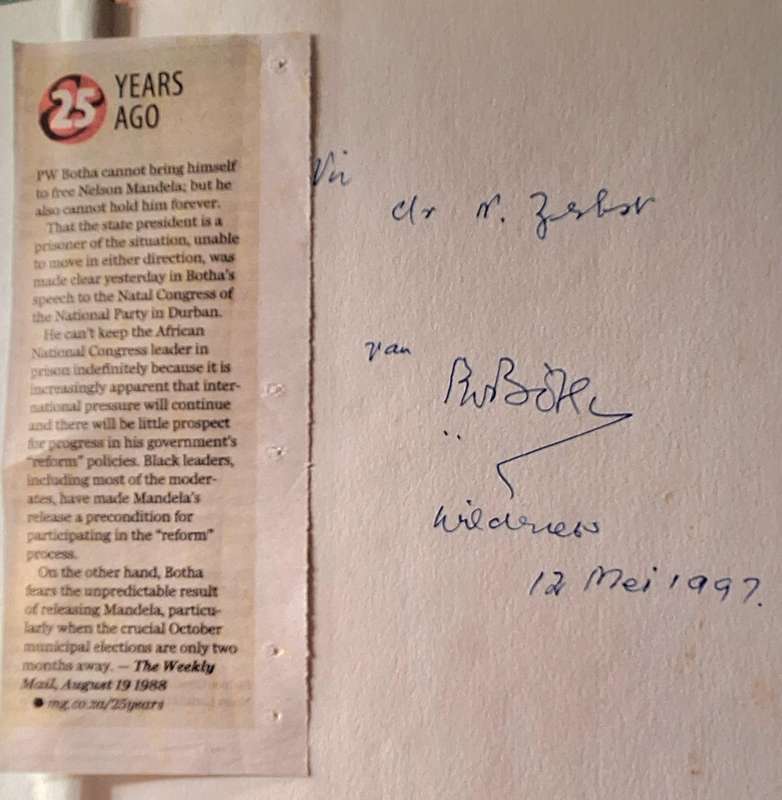 25 YEARS
AGO
PW Botha cannot being himself
to free Nelson Mandela; but he
also cannot hold him forever.
That the state president is a
prisoner of the situation, unable
to move in either direction, was
made clear yesterday in Botha's
speech to the Natal Congress of
the National Party in Durban.
He can't keep the African
National Congress leader in
prison indefinitely because it is
increasingly apparent that inter-
national pressure will continue
and there will be little prospect
for progress in his government's
"reform" policies. Black leaders,
including most of the moder-
ates, have made Mandela's
release a precondition for
participating in the "reform"
process.
On the other hand, Botha
fears the unpredictable result
of releasing Mandela, particu-
larly when the crucial October
municipal elections are only two
months away. — The Weekly
Mail, August 19 1988
● mg.co.za/25years
Vir
dr N.
van
PW Botha
Wilderness
12 Mei 1997.